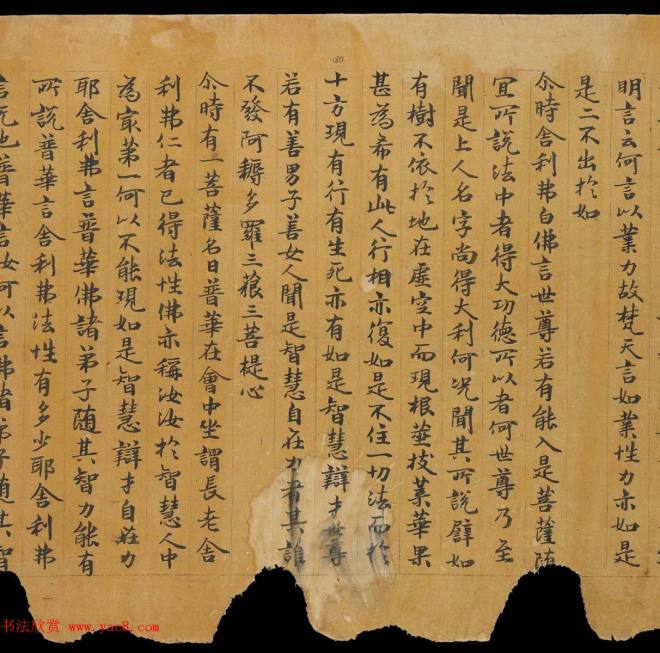 明言云何言以業力故梵天言如業性力亦如是
是二不出於如
尒時舍利弗白佛言世尊若有能入是菩薩随
冝所說法中者得大功德所以者何世尊乃至
聞是上人名字尚得大利何況聞其所說譬如
有樹不依於地在虛空中而現根莖枝葉華果
甚為希有此人行相亦復如是不住一切法而於
十方現有行有生死亦有如是智慧辯才世尊
若有善男子善女人聞是智慧自在力者其誰
不發阿耨多羅三藐三菩提心
尒時有一菩薩名曰普華在會中坐謂長老舍
利弗仁者已得法性佛亦稱汝汝於智慧人中
為冣第一何以不能現如是智慧辯才自在力
耶舍利弗言普華佛諸弟子随其智力能有
所說普華言舍利弗法性有多少耶舍利弗
言无也普華言汝何以言佛諸弟子随其智
书法欣赏 www.yac8.com